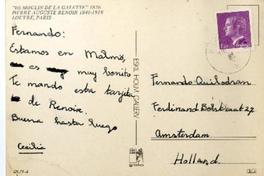 "LE MOULIN DE LA GALETTE" 1876
PIERRE AUGUSTE RENOIR 1841-1919
LOUVRE, PARIS
Fernando:
Estamos en Malmö,
es muy bonito
Te mando esta tarjeta
de Renoir.
Buena hasta luego
Cecilia
Fernando Quilodran
Ferdinand Bolstraat 27
Amsterdam
Holland